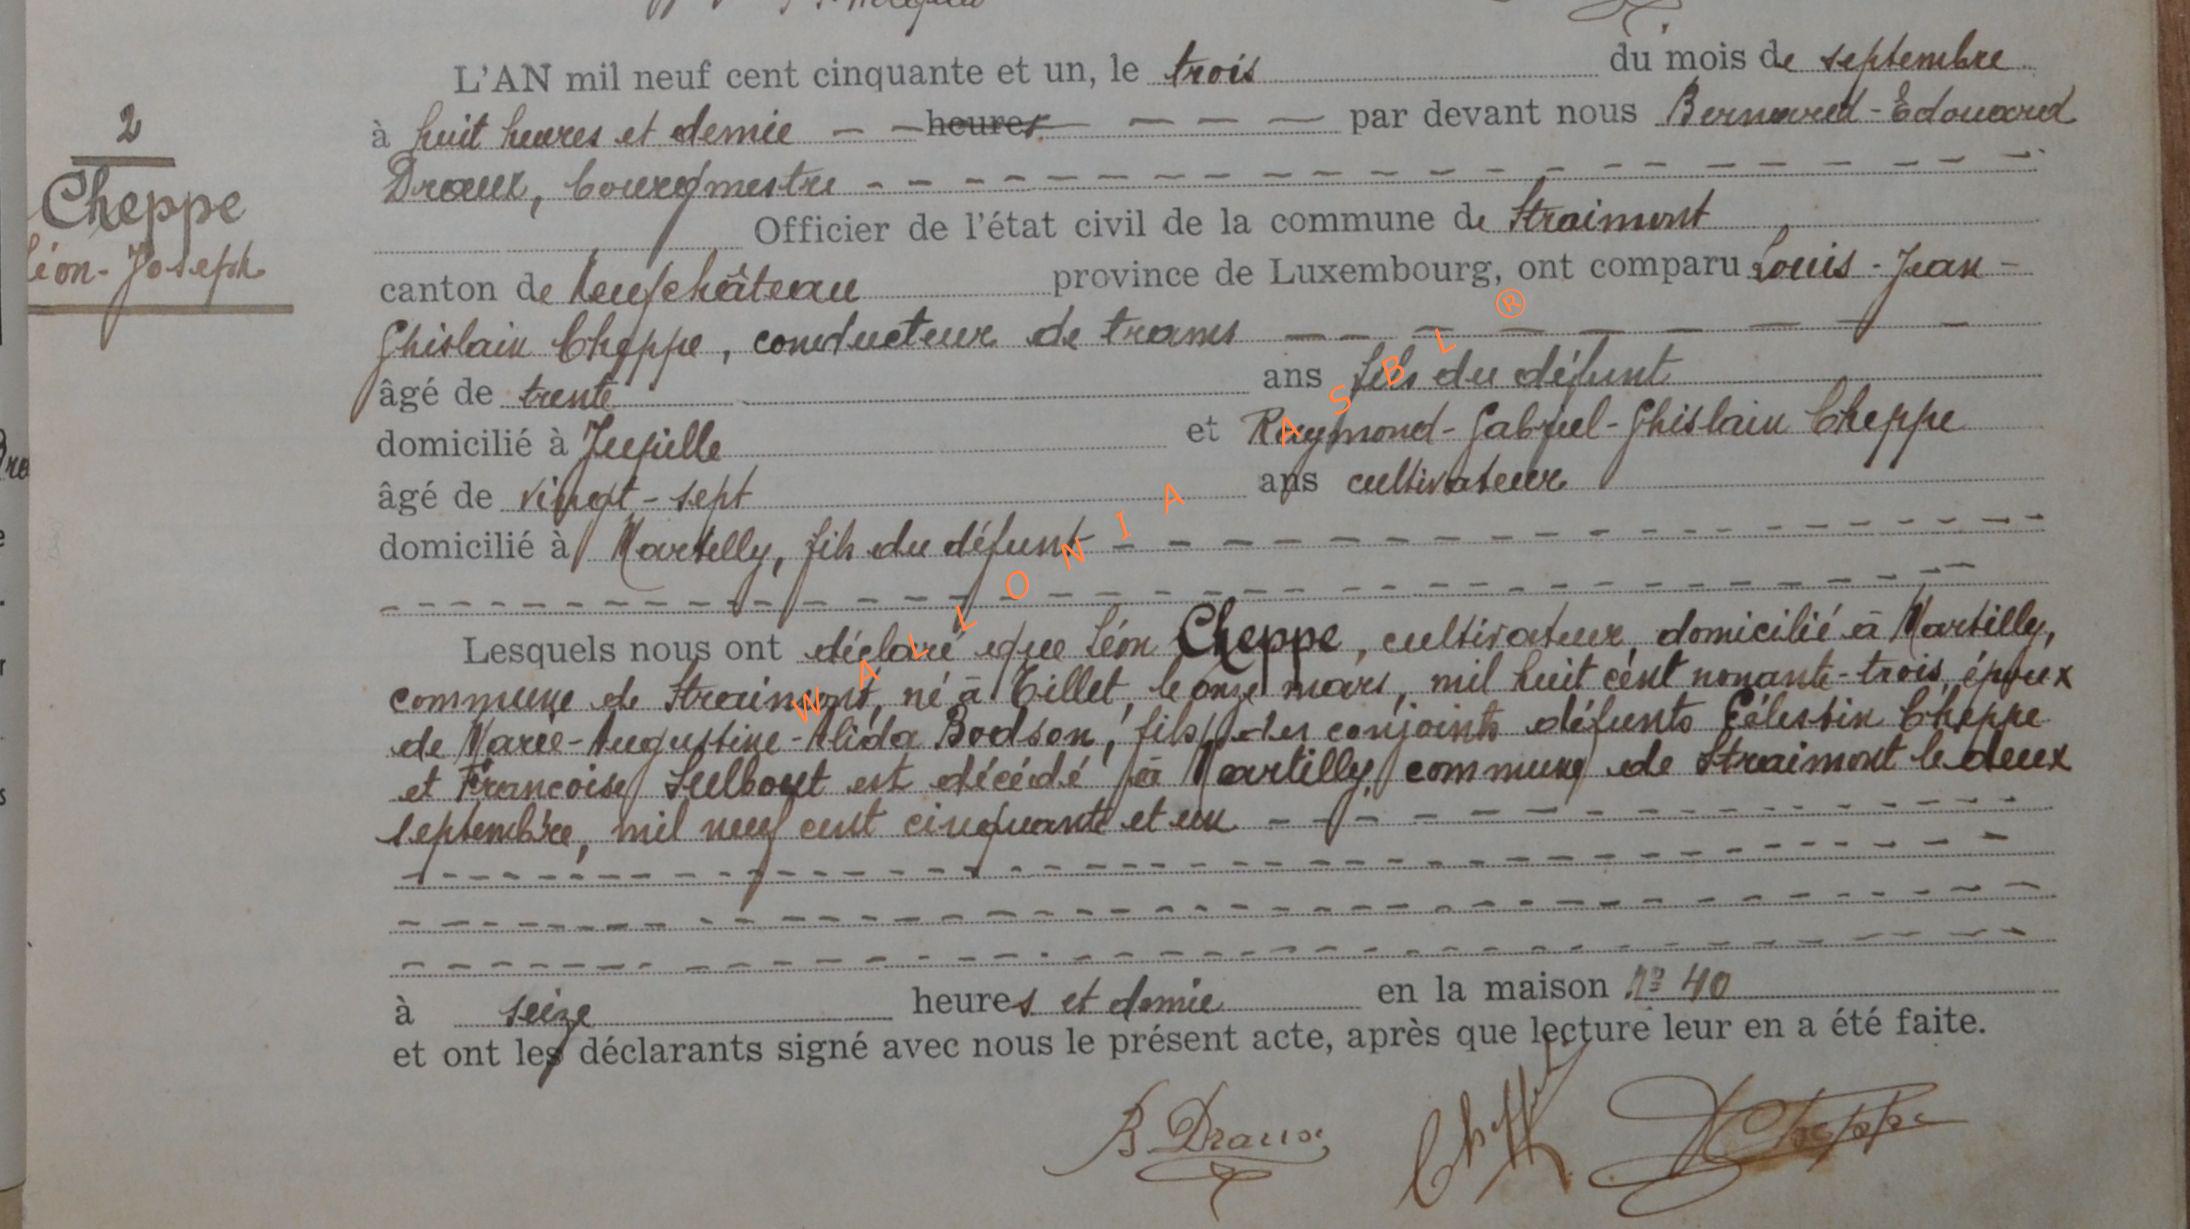 2
Cheppe
Léon-Joseph
L'AN mil neuf cent cinquante et un, le trois du mois de septembre
à huit heures et demie heures par devant nous Bernard-Edouard
Draux, bourgmestre
Officier de l'état civil de la commune de Straimont
canton de Neufchâteau province de Luxembourg, ont comparu Louis-Jean-
Ghislain Cheppe, conducteur de trams
âgé de trente ans fils du défunt
domicilié à Jupille et Raymond-Gabriel-Ghislain Cheppe
âgé de vingt-sept ans cultivateur
domicilié à Martilly, fils du défunt
Lesquels nous ont déclaré que Léon Cheppe, cultivateur, domicilié à Martilly,
commune de Straimont, né à Tillet, le onze mars, mil huit cent nonante-trois, époux
de Marie-Augustine-Alida Bodson, fils des conjoints défunts Célestin Cheppe
et Françoise Sulbout est décédé à Martilly, commune de Straimont le deux
septembre, mil neuf cent cinquante et un
à seize heures et demie en la maison n° 40
et ont les déclarants signé avec nous le présent acte, après que lecture leur en a été faite.
B Draux Cheppe Cheppe
WALLONIA ASBL ®